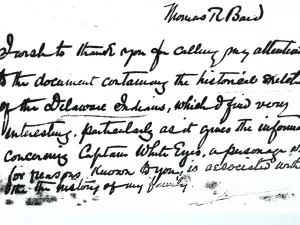 Thomas R Baird
I wish to thank you for calling my attention
to the document containing the historical sketch
of the Delaware Indians, which I find very
interesting, particularly as it gives the inform
concerning Captain White Eyes, a personage w
for reasons, known by you, is associated with
the history of my family.